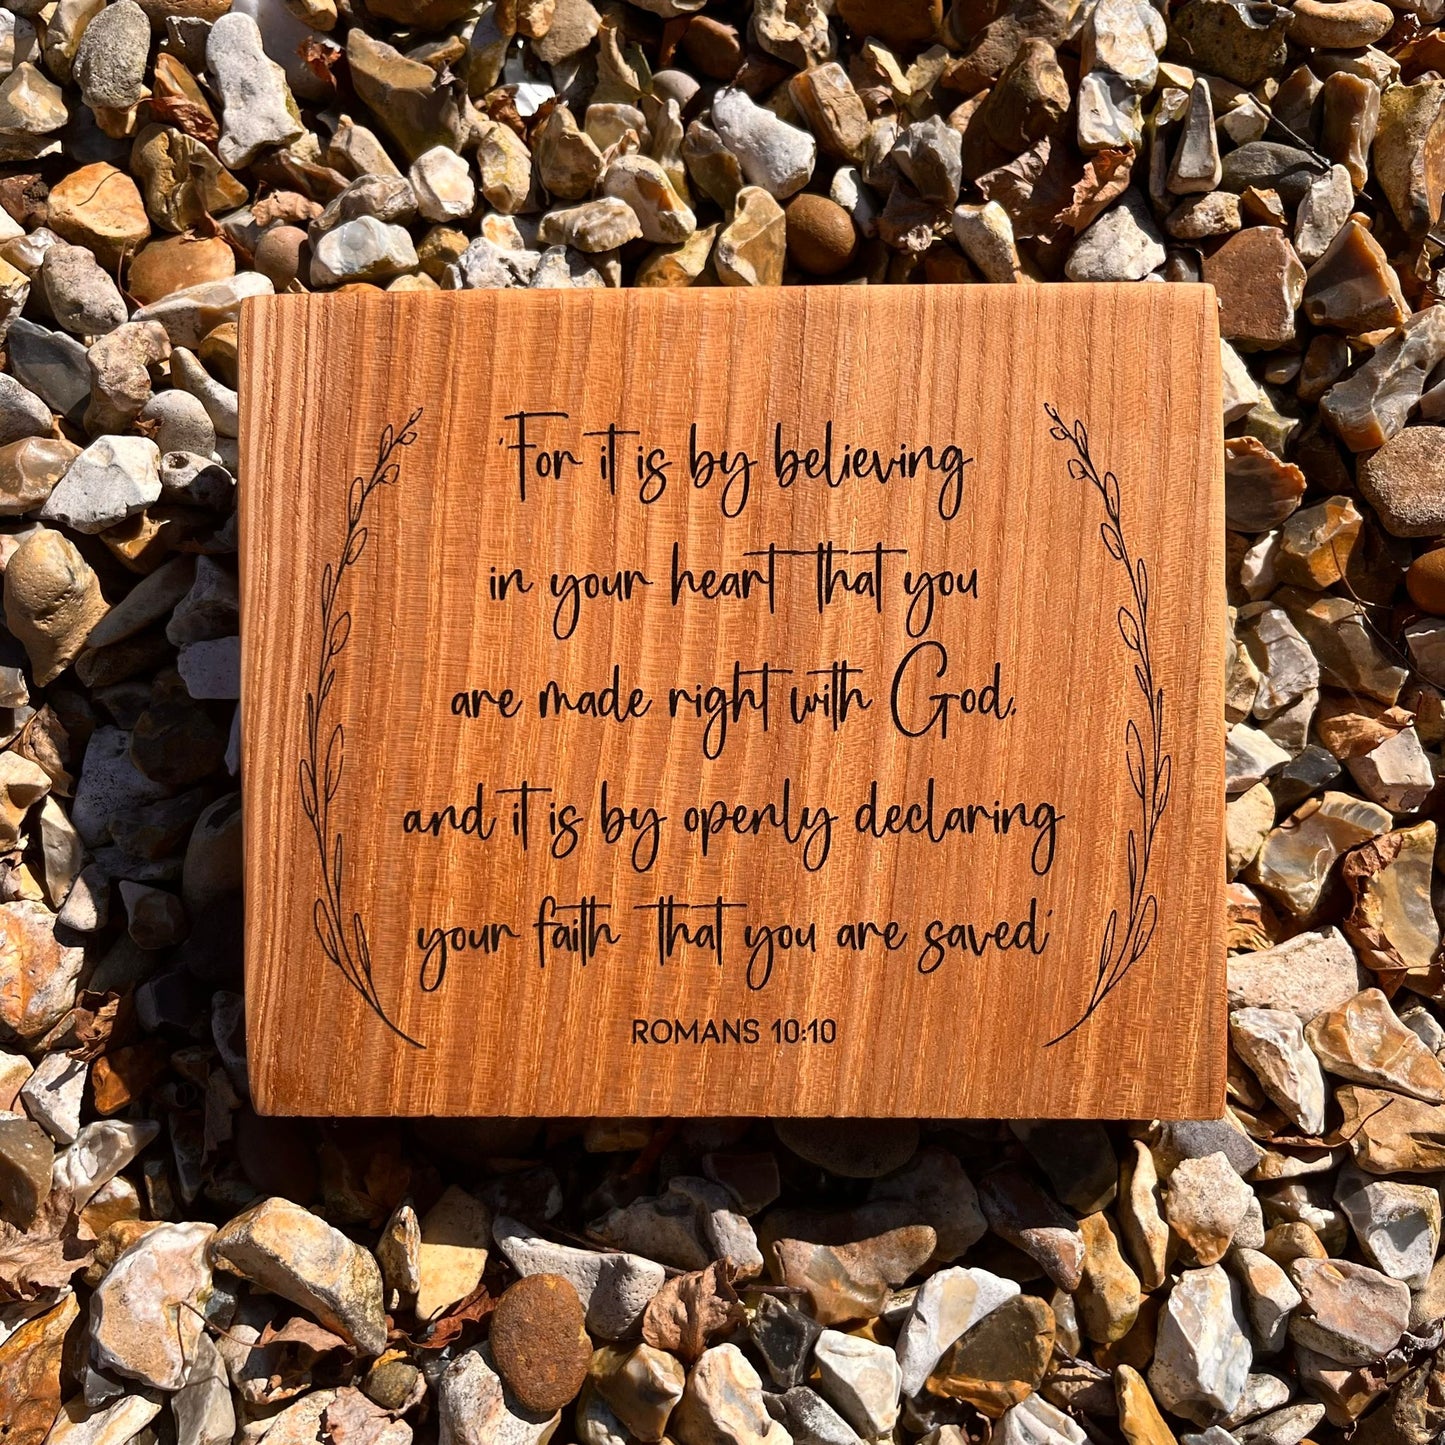 'For it is by believing
in your heart that you
are made right with God,
and it is by openly declaring
your faith that you are saved'
ROMANS 10:10